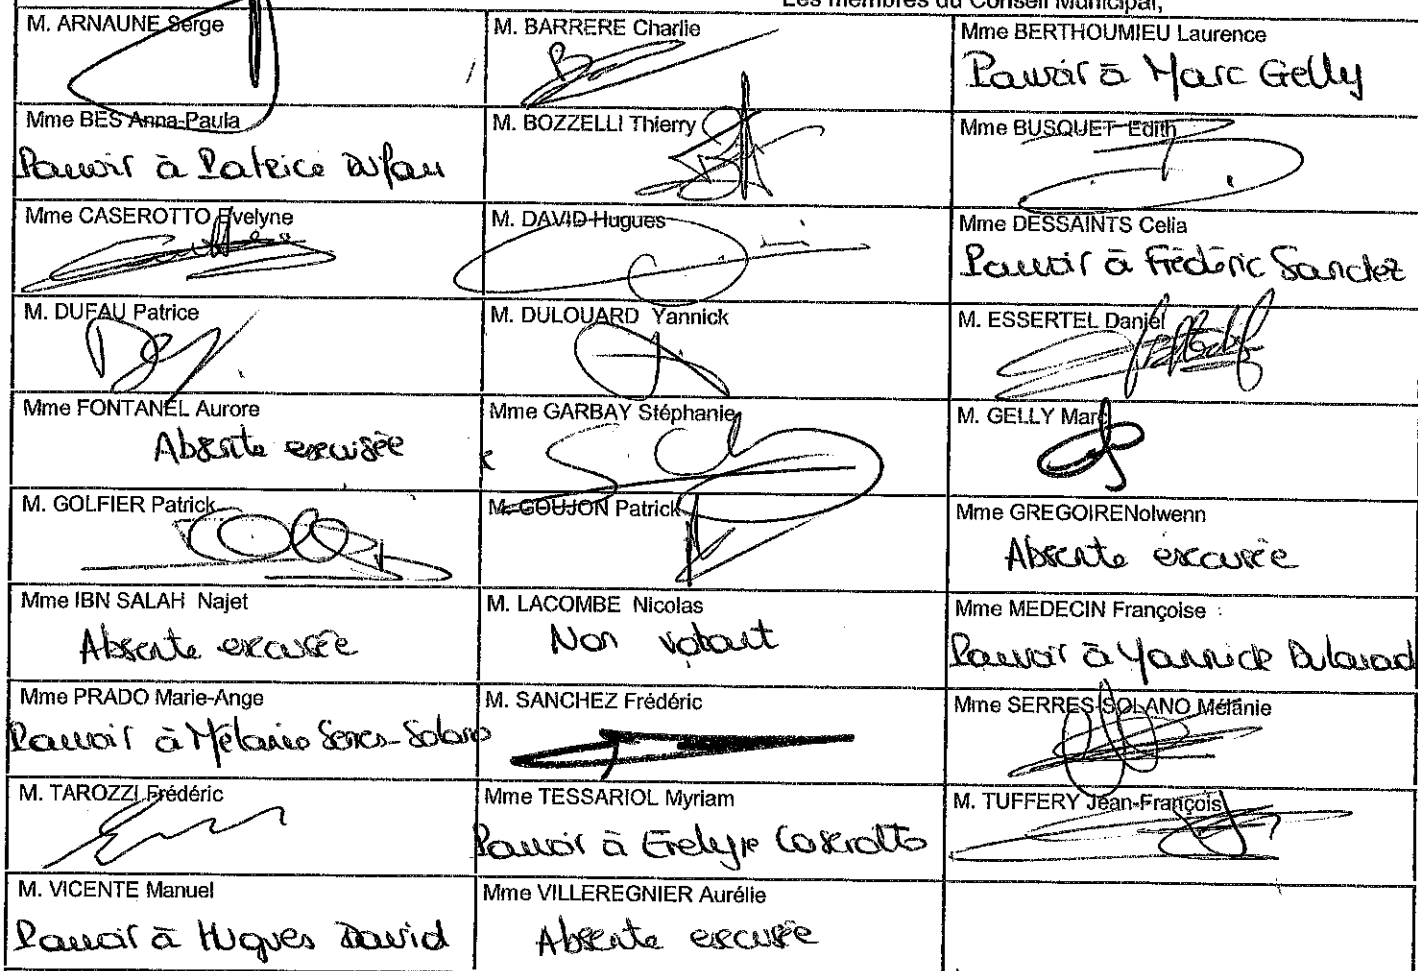 Les membres du Conseil Municipal,
M. ARNAUNE Serge
M. BARRERE Charlie
Mme BERTHOUMIEU Laurence
Pouvoir à Marc Gelly
Mme BES Anna-Paula
Pouvoir à Patrice Dufau
M. BOZZELLI Thierry
Mme BUSQUET Edith
Mme CASEROTTO Evelyne
M. DAVID Hugues
Mme DESSAINTS Celia
Pouvoir à Frédéric Sanchez
M. DUFAU Patrice
M. DULOUARD Yannick
M. ESSERTEL Daniel
Mme FONTANEL Aurore
Absente excusée
Mme GARBAY Stéphanie
M. GELLY Marc
M. GOLFIER Patrick
M. GOUJON Patrick
Mme GREGOIRENolwenn
Absente excusée
Mme IBN SALAH Najet
Absente excusée
M. LACOMBE Nicolas
Non votant
Mme MEDECIN Françoise
Pouvoir à Yannick Dulouard
Mme PRADO Marie-Ange
Pouvoir à Mélanie Serres-Solano
M. SANCHEZ Frédéric
Mme SERRES-SOLANO Mélanie
M. TAROZZI Frédéric
Mme TESSARIOL Myriam
Pouvoir à Evelyne Caserotto
M. TUFFERY Jean-François
M. VICENTE Manuel
Pouvoir à Hugues David
Mme VILLEREGNIER Aurélie
Absente excusée